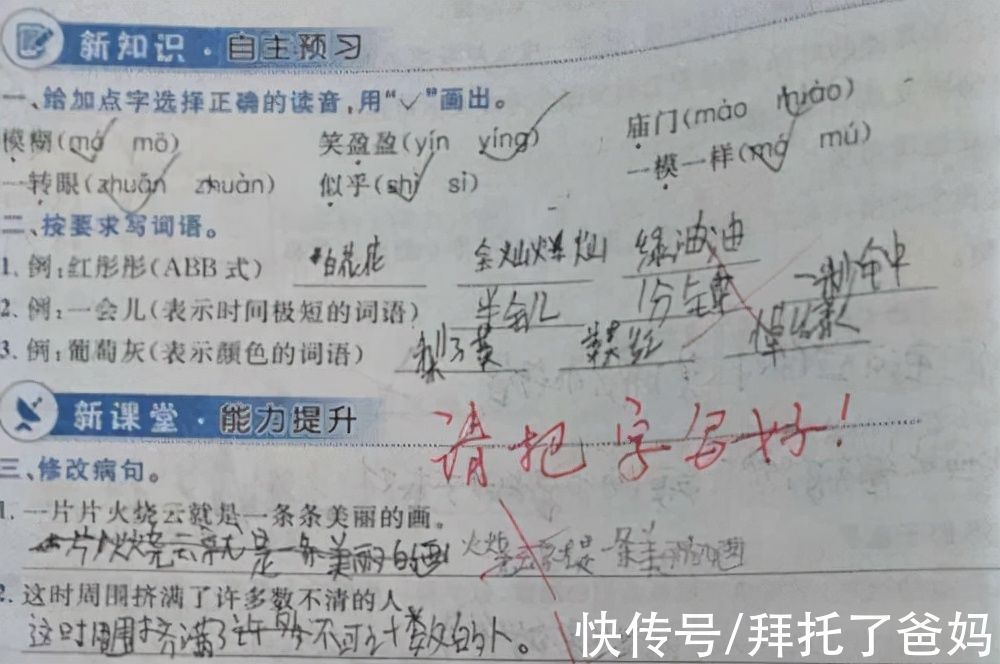 新知识·自主预习
一、给加点字选择正确的读音,用“✓”画出。
模糊(mó mō) 笑盈盈(yín yíng) 庙门(mào miào)
一转眼(zhuǎn zhuàn) 似乎(shì sì) 一模一样(mó mú)
二、按要求写词语。
1. 例:红彤彤(ABB 式) 白花花 金灿灿 绿油油
2. 例:一会儿(表示时间极短的词语) 半会儿 1分钟 一秒钟
3. 例:葡萄灰(表示颜色的词语) 梨子黄
新课堂·能力提升
请把字写好!
三、修改病句。
1. 一片片火烧云就是一条条美丽的画。
火烧云就是一条美丽的画
2. 这时周围挤满了许多数不清的人。
这时周围挤满了许多不可计数的人。
快传号/拜托了爸妈